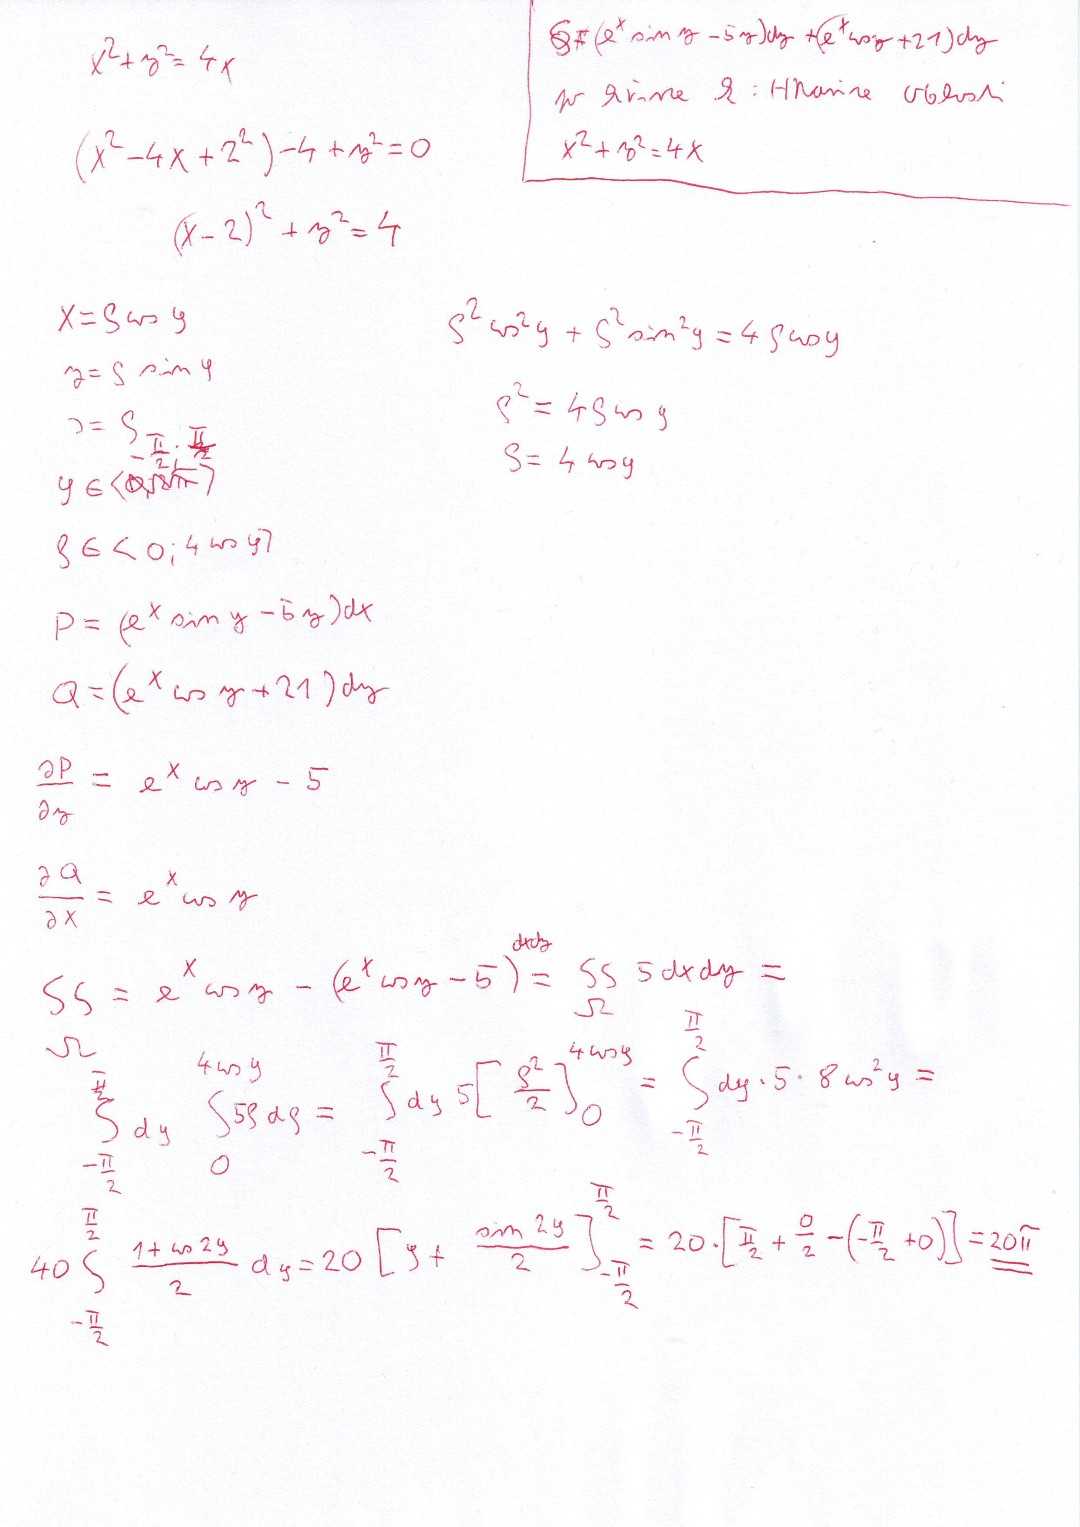 ∮ (e^x sin y - 5y)dy + (e^x cos y + 21)dy
po křivce k : Hranice oblasti
x² + y² = 4x
x² + y² = 4x
(x² - 4x + 2²) - 4 + y² = 0
(x - 2)² + y² = 4
x = ρ cos φ
y = ρ sin φ
J = ρ
φ ∈ < -π/2 ; π/2 >
ρ ∈ < 0; 4 cos φ >
ρ² cos² φ + ρ² sin² φ = 4 ρ cos φ
ρ² = 4 ρ cos φ
ρ = 4 cos φ
P = (e^x sin y - 5y) dx
Q = (e^x cos y + 21) dy
∂P/∂y = e^x cos y - 5
∂Q/∂x = e^x cos y
∫∫_Ω = e^x cos y - (e^x cos y - 5) dxdy = ∫∫_Ω 5 dx dy =
∫_{-π/2}^{π/2} dφ ∫_0^{4 cos φ} 5ρ dρ = ∫_{-π/2}^{π/2} dφ 5 [ρ²/2]_0^{4 cos φ} = ∫_{-π/2}^{π/2} dφ · 5 · 8 cos² φ =
40 ∫_{-π/2}^{π/2} (1 + cos 2φ)/2 dφ = 20 [φ + sin 2φ/2]_{-π/2}^{π/2} = 20 · [π/2 + 0/2 - (-π/2 + 0)] = 20π